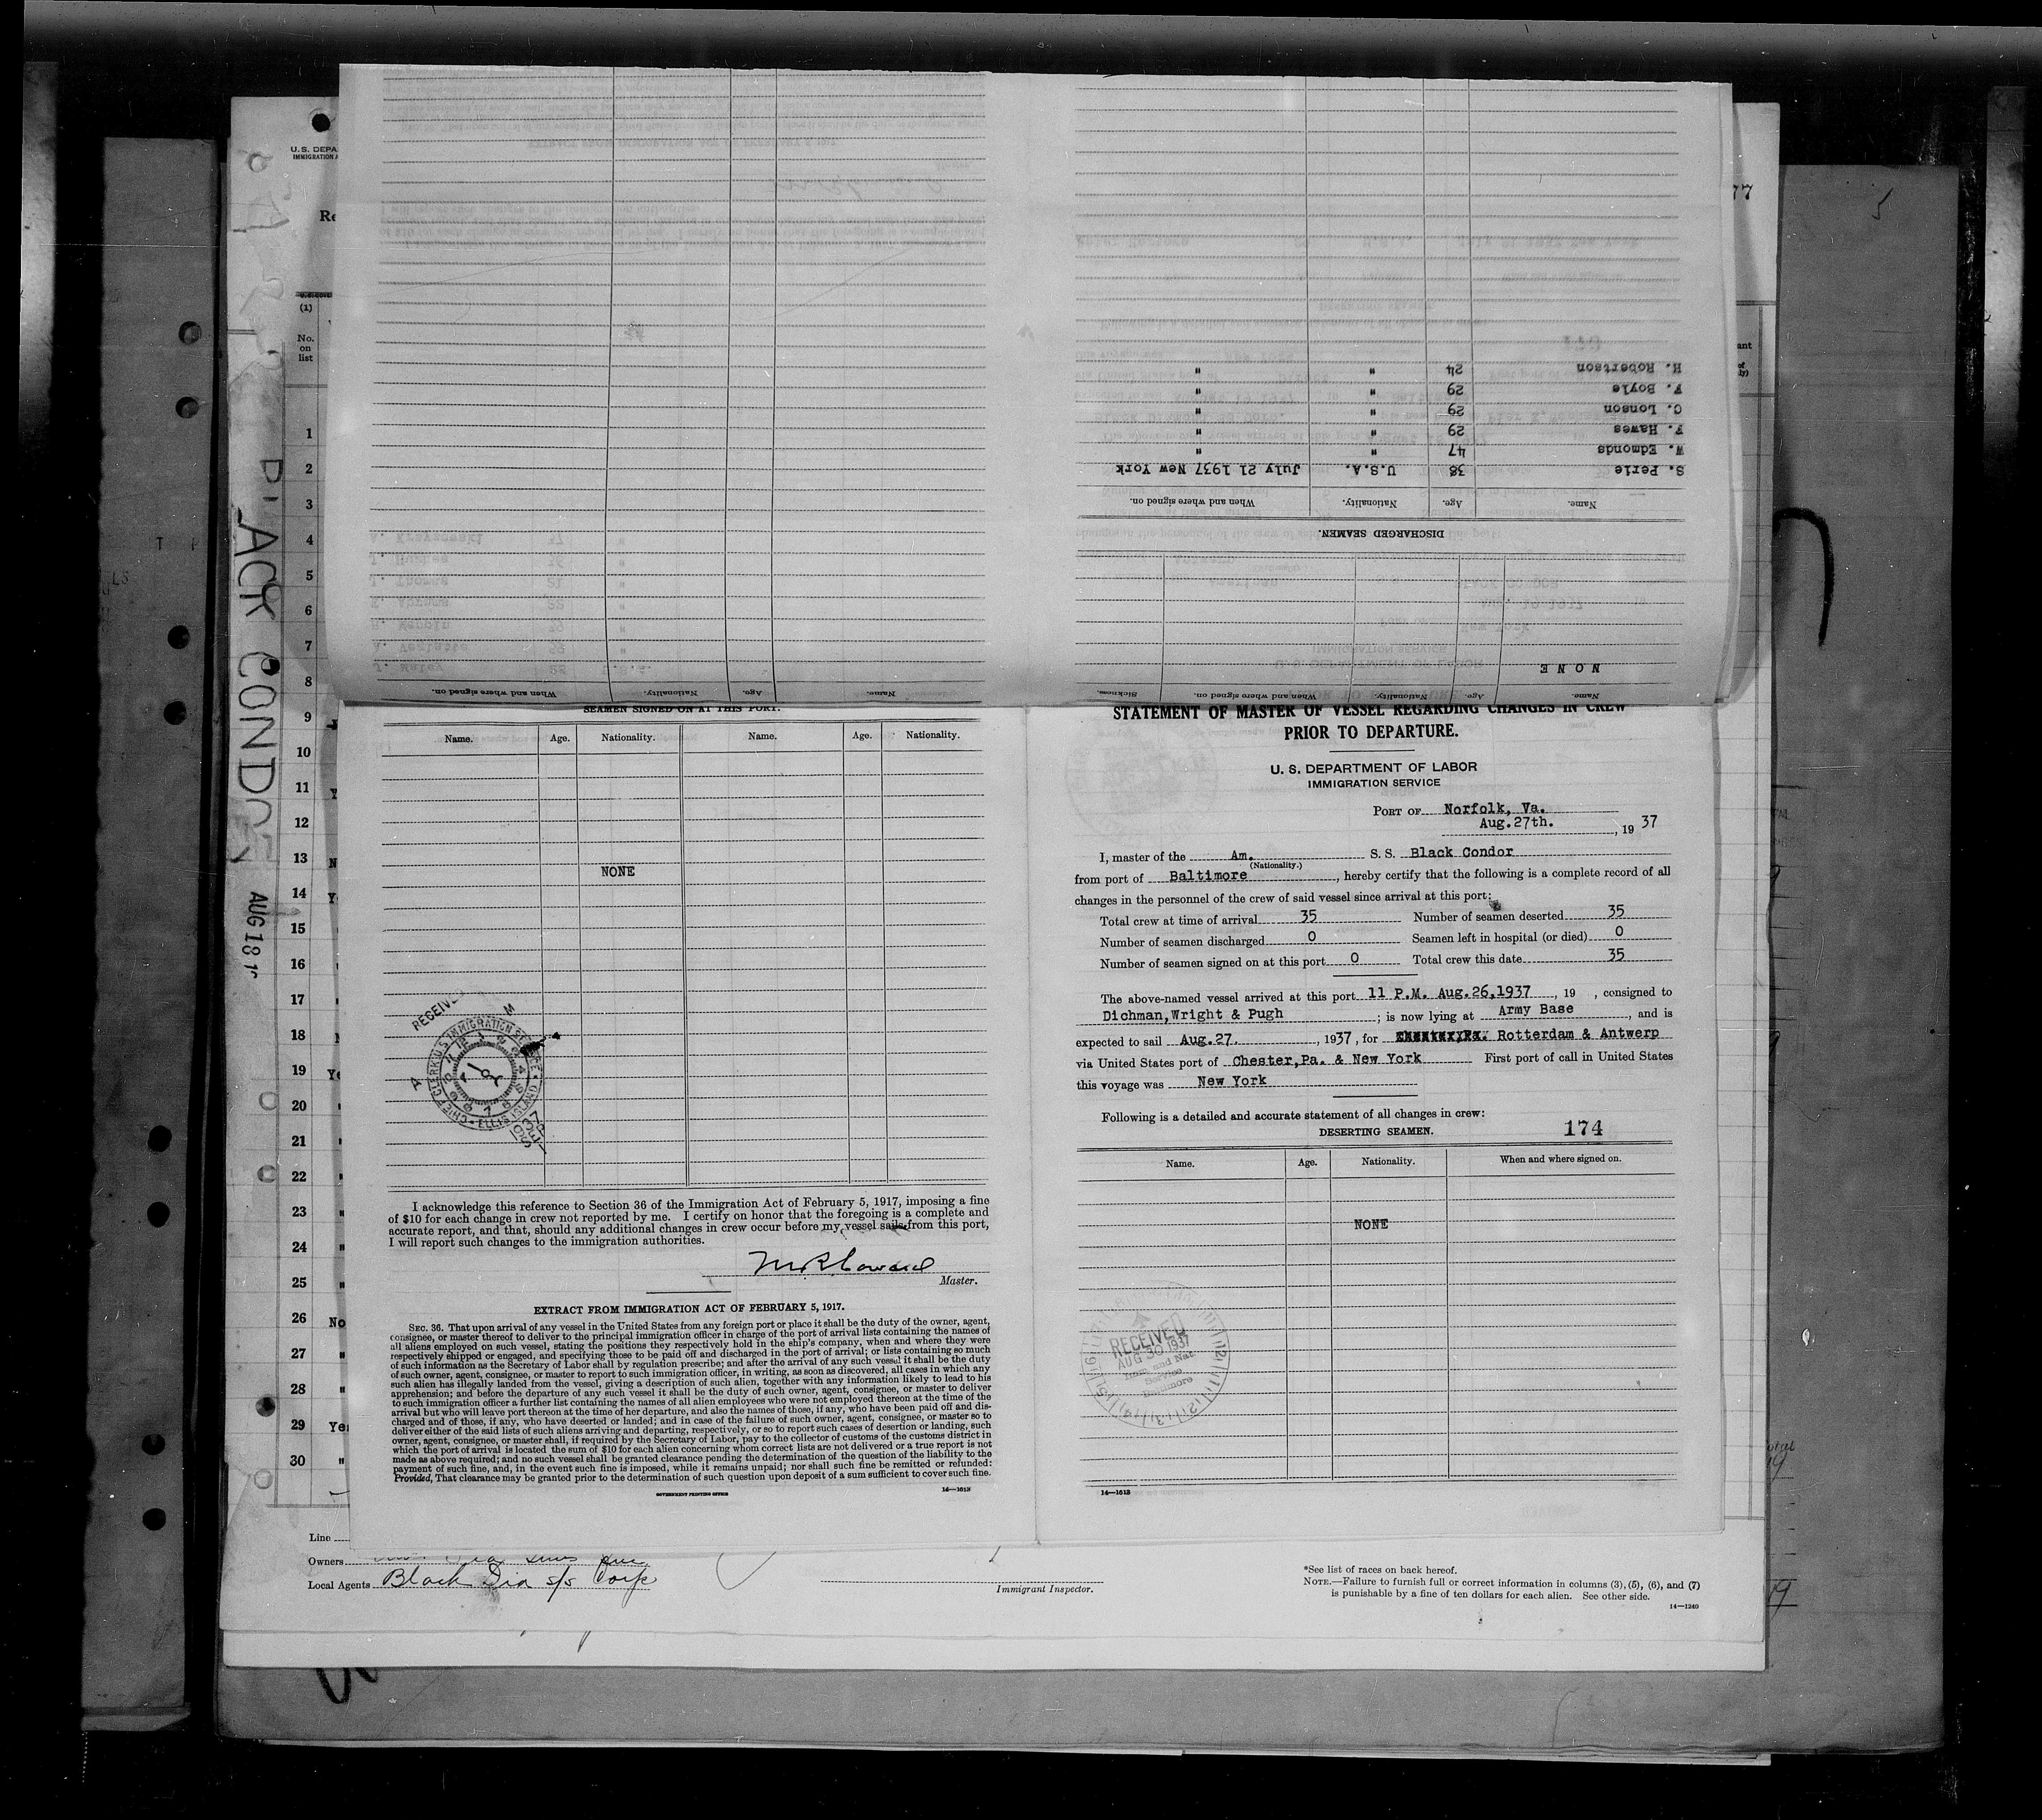 U.S. DEPA
IMMIGRATION A
77
(1)
No.
on
list
BLACK CONDOR
AUG 18
1
2
3
4
5
6
7
8
9
10
11
12
13
14
15
16
17
18
19
20
21
22
23
24
25
26
27
28
29
30
H. Robertson 24 " "
F. Boyle 29 " "
C. Lonson 29 " "
F. Hawes 29 " "
W. Edmonds 47 " "
S. Perie 38 U.S.A. July 21 1937 New York
Name. Age. Nationality. When and where signed on.
DISCHARGED SEAMEN.
NONE
Name. Age. Nationality. When and where signed on. Sickness.
Name. Age. Nationality. When and where signed on.
SEAMEN SIGNED ON AT THIS PORT.
Name. Age. Nationality. Name. Age. Nationality.
NONE
RECEIVED
CHIEF CLERK U.S. IMMIGRATION SERVICE ELLIS ISLAND
I acknowledge this reference to Section 36 of the Immigration Act of February 5, 1917, imposing a fine
of $10 for each change in crew not reported by me. I certify on honor that the foregoing is a complete and
accurate report, and that, should any additional changes in crew occur before my vessel sails from this port,
I will report such changes to the immigration authorities.
Master.
EXTRACT FROM IMMIGRATION ACT OF FEBRUARY 5, 1917.
SEC. 36. That upon arrival of any vessel in the United States from any foreign port or place it shall be the duty of the owner, agent,
consignee, or master thereof to deliver to the principal immigration officer in charge of the port of arrival lists containing the names of
all aliens employed on such vessel, stating the positions they respectively hold in the ship's company, when and where they were
respectively shipped or engaged, and specifying those to be paid off and discharged in the port of arrival; or lists containing so much
of such information as the Secretary of Labor shall by regulation prescribe; and after the arrival of any such vessel it shall be the duty
of such owner, agent, consignee, or master to report to such immigration officer, in writing, as soon as discovered, all cases in which any
such alien has illegally landed from the vessel, giving a description of such alien, together with any information likely to lead to his
apprehension; and before the departure of any such vessel it shall be the duty of such owner, agent, consignee, or master to deliver
to such immigration officer a further list containing the names of all alien employees who were not employed thereon at the time of the
arrival but who will leave port thereon at the time of her departure, and also the names of those, if any, who have been paid off and dis-
charged and of those, if any, who have deserted or landed; and in case of the failure of such owner, agent, consignee, or master so to
deliver either of the said lists of such aliens arriving and departing, respectively, or so to report such cases of desertion or landing, such
owner, agent, consignee, or master shall, if required by the Secretary of Labor, pay to the collector of customs of the customs district in
which the port of arrival is located the sum of $10 for each alien concerning whom correct lists are not delivered or a true report is not
made as above required; and no such vessel shall be granted clearance pending the determination of the question of the liability to the
payment of such fine, and, in the event such fine is imposed, while it remains unpaid; nor shall such fine be remitted or refunded:
Provided, That clearance may be granted prior to the determination of such question upon deposit of a sum sufficient to cover such fine.
GOVERNMENT PRINTING OFFICE 14—1613
STATEMENT OF MASTER OF VESSEL REGARDING CHANGES IN CREW
PRIOR TO DEPARTURE.
U. S. DEPARTMENT OF LABOR
IMMIGRATION SERVICE
PORT OF Norfolk, Va.
Aug.27th., 19 37
I, master of the Am. S. S. Black Condor
(Nationality.)
from port of Baltimore, hereby certify that the following is a complete record of all
changes in the personnel of the crew of said vessel since arrival at this port:
Total crew at time of arrival 35 Number of seamen deserted 35
Number of seamen discharged 0 Seamen left in hospital (or died) 0
Number of seamen signed on at this port 0 Total crew this date 35
The above-named vessel arrived at this port 11 P.M. Aug.26,1937, 19 , consigned to
Dichman,Wright & Pugh ; is now lying at Army Base, and is
expected to sail Aug.27., 1937, for Rotterdam & Antwerp
via United States port of Chester,Pa. & New York First port of call in United States
this voyage was New York
Following is a detailed and accurate statement of all changes in crew:
DESERTING SEAMEN. 174
Name. Age. Nationality. When and where signed on.
NONE
RECEIVED
AUG 30 1937
Imm. and Nat.
Service
Baltimore
14—1613
Line
Owners
Local Agents Black Dia s/s Corp
Immigrant Inspector.
*See list of races on back hereof.
NOTE.—Failure to furnish full or correct information in columns (3), (5), (6), and (7)
is punishable by a fine of ten dollars for each alien. See other side.
14—1240